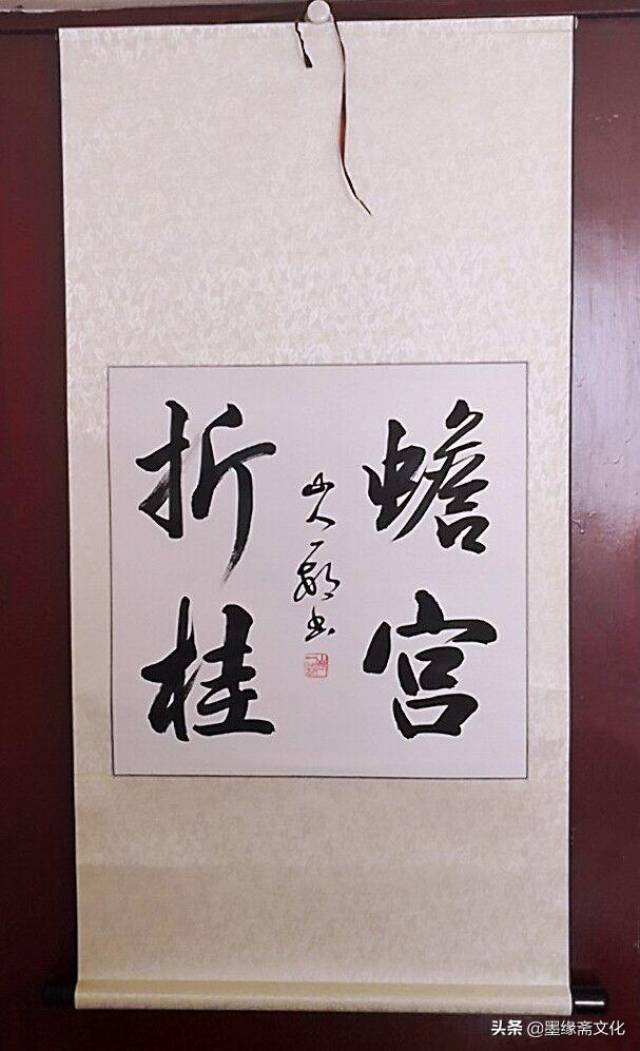 蟾宫
折桂
头条 @墨缘斋文化